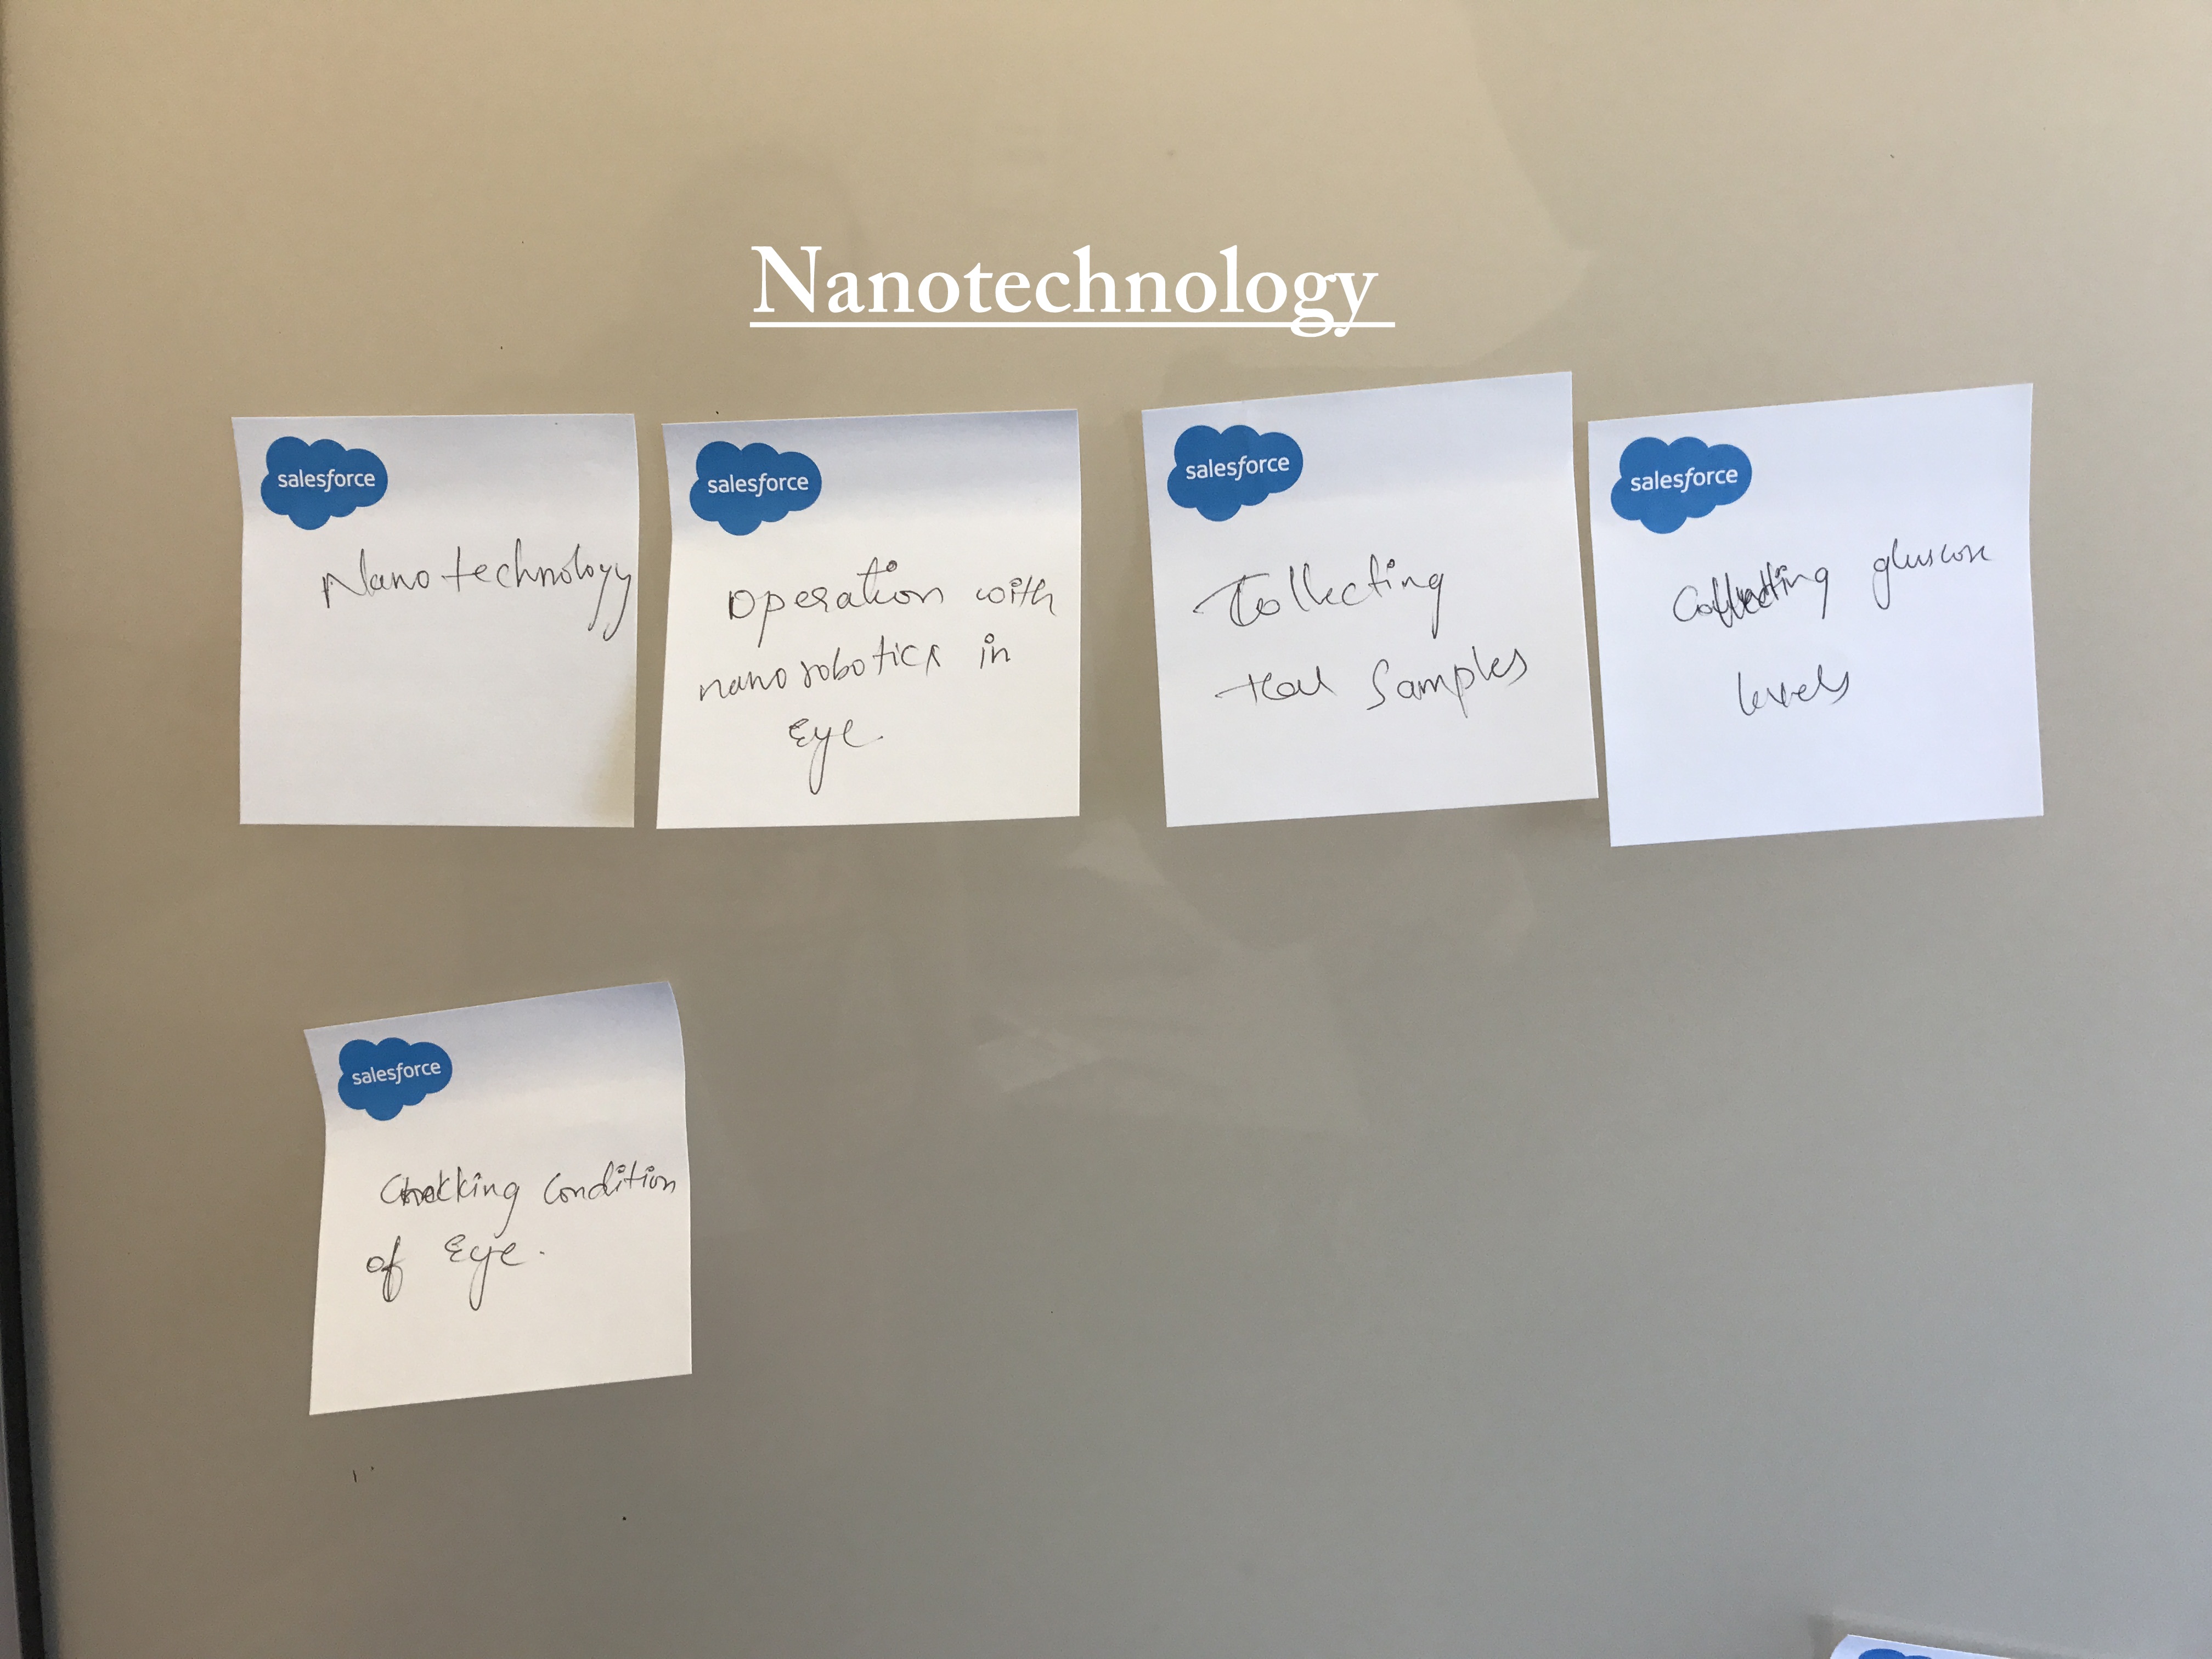 Nanotechnology
salesforce
Nanotechnology
salesforce
Operation with
nano robotics in
Eye.
salesforce
Collecting
Samples
salesforce
Collecting
levels
salesforce
Checking Condition
of Eye.